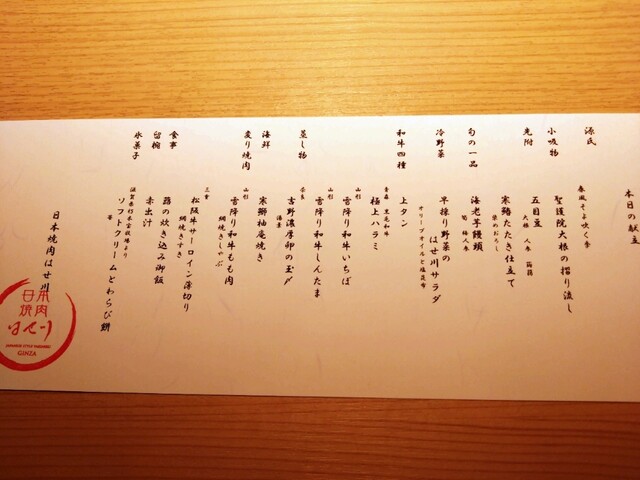 本日の献立
源氏
春風そよ吹く季
小吸物
聖護院大根の摺り流し
先附
五目豆
大根 人参
寒鰆たたき仕立て
旬の一品
海老芋饅頭
冷野菜
早採り野菜の
はせ川サラダ
オリーブオイルと塩昆布
和牛四種
上タン
青森 黒毛和牛
極上ハラミ
山形
雪降り和牛いちぼ
山形
雪降り和牛しんたま
蒸し物
奈良
吉野濃厚卵の玉〆
海鮮
寒鰤柚庵焼き
炙り焼肉
山形
雪降り和牛もも肉
網焼きしゃぶ
三重
松阪牛サーロイン薄切り
網焼きすき
食事
の炊き込み御飯
留椀
赤出汁
氷菓子
ソフトクリームとわらび餅
日本焼肉はせ川
日本
焼肉
はせ川
JAPANESE STYLE YAKINIKU
GINZA